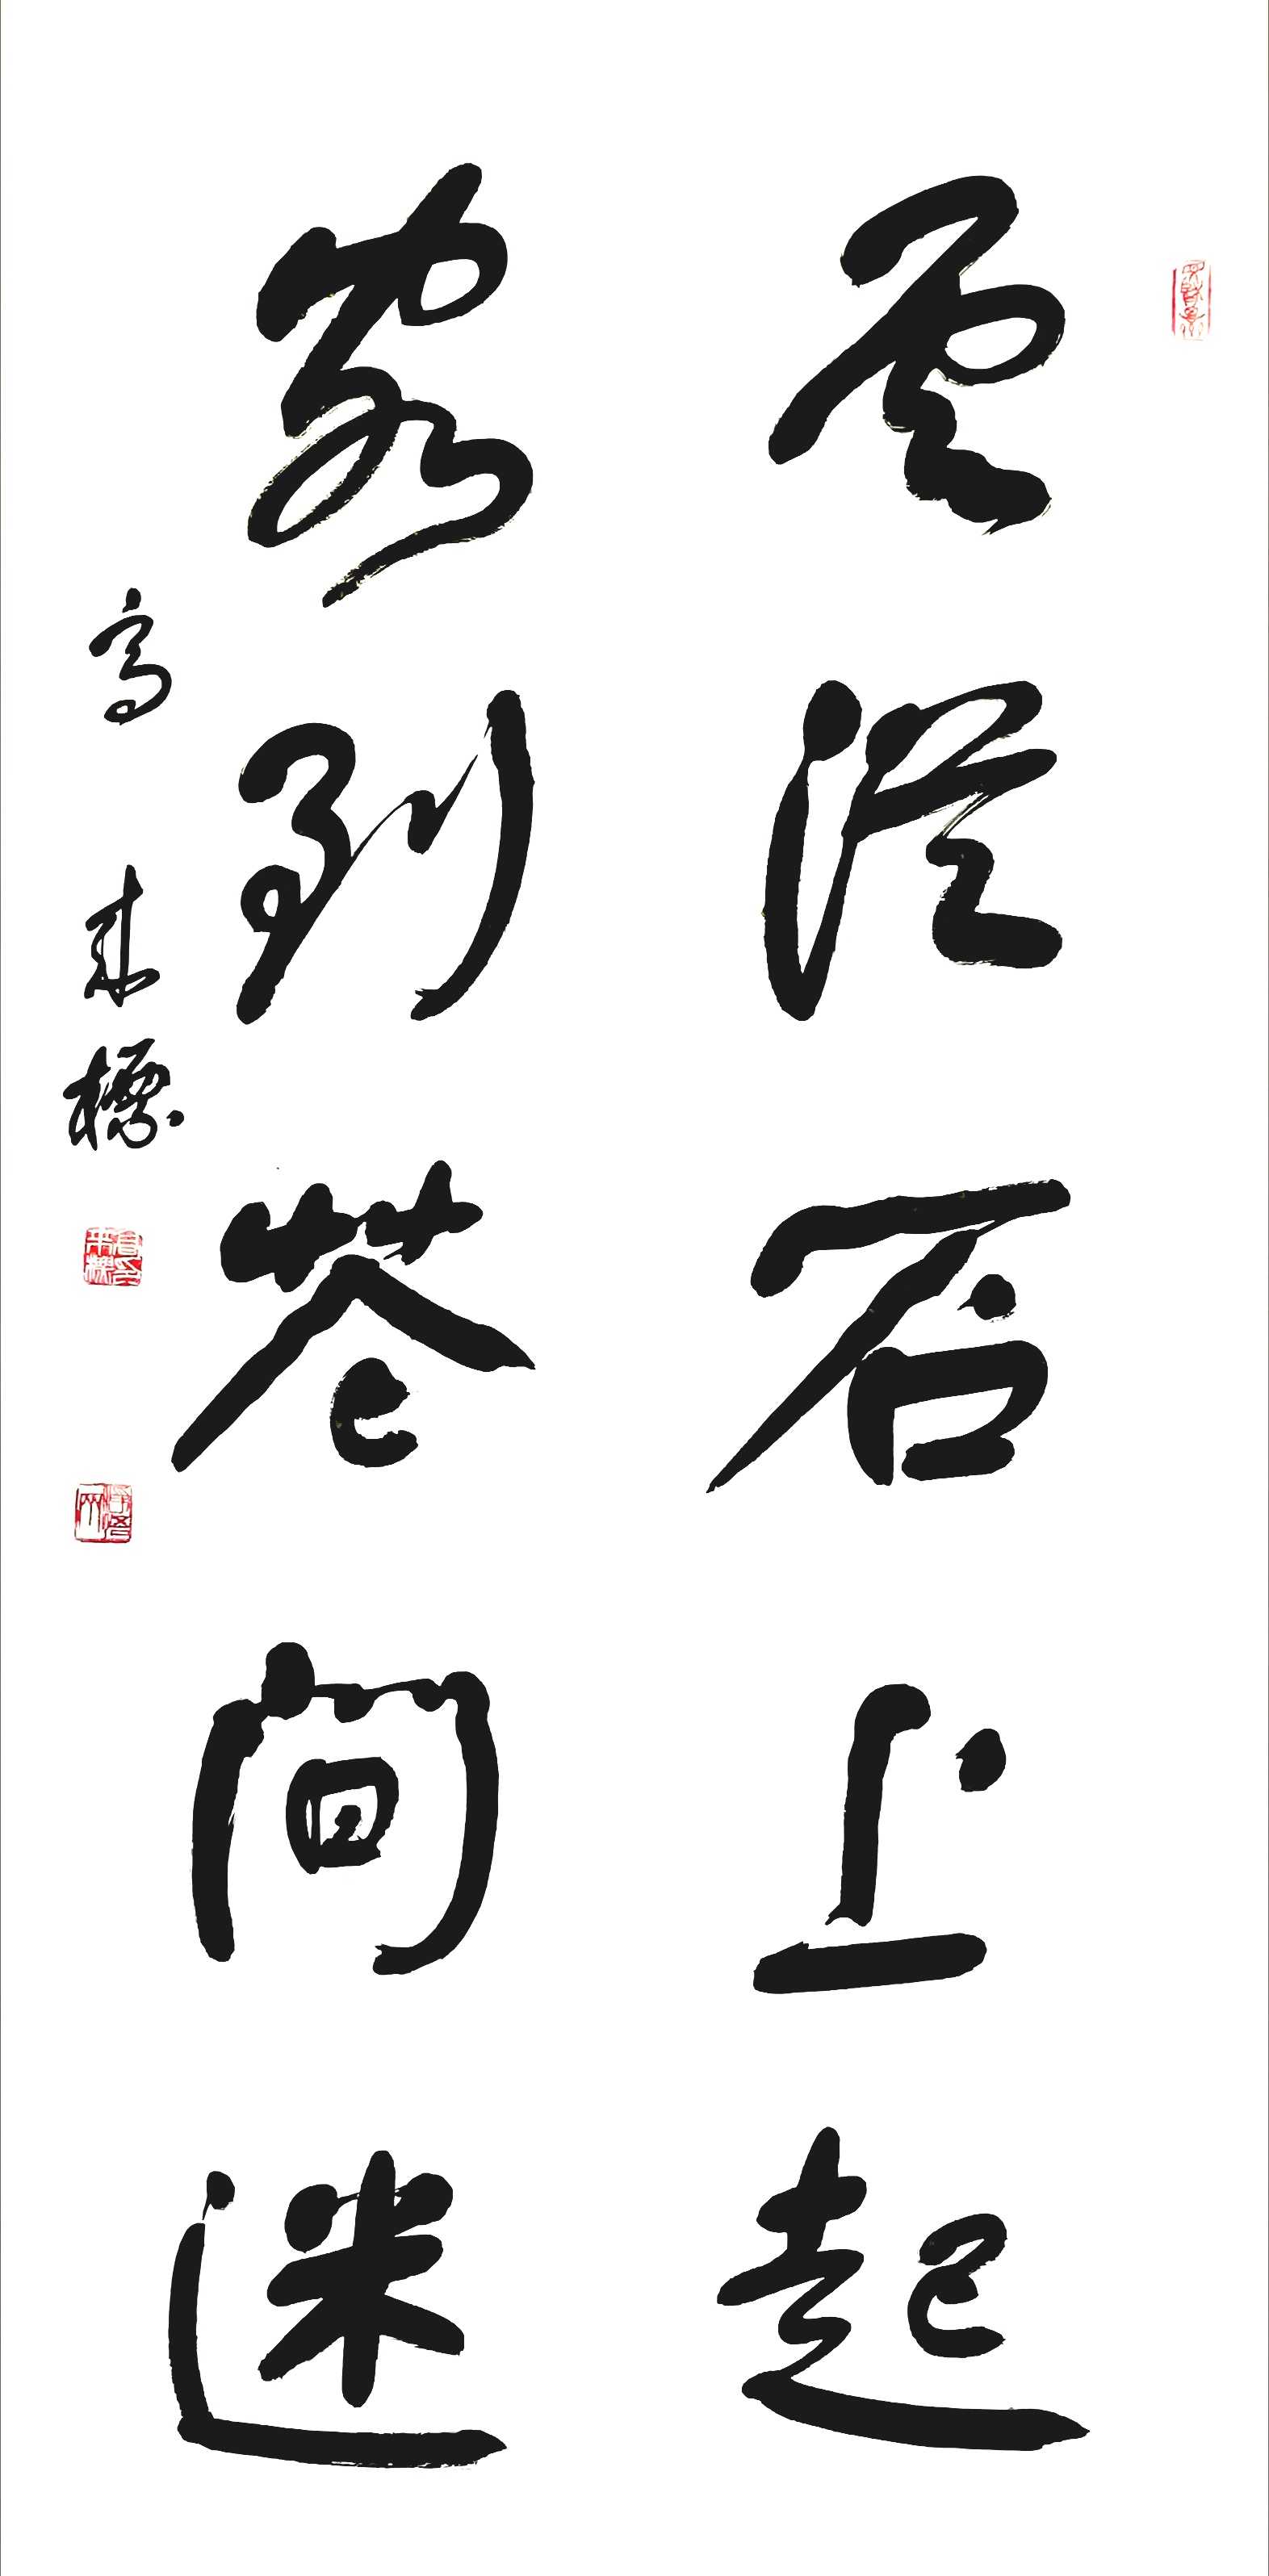 雲從石上起
客到花間迷
高来標